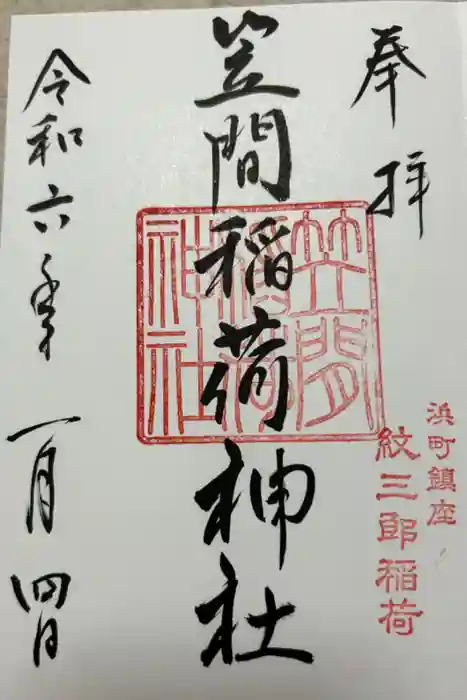 奉拝
浜町鎮座
紋三郎稲荷
笠間稲荷神社
笠間稲荷神社
令和六年 一月四日